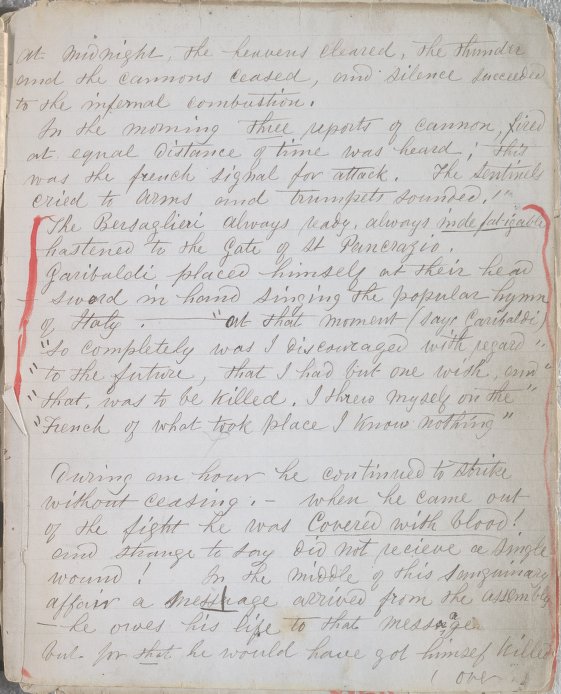 at midnight, the heavens cleared, the thunder
and the cannons ceased, and silence succeeded
to the infernal combustion.
In the morning three reports of cannon, fired
at equal distance of time was heard; this
was the french signal for attack. The Sentinels
cried to arms and trumpets sounded!
The Bersaglieri always ready, always indefatigable
hastened to the Gate of St Pancrazio.
Garibaldi placed himself at their head
- sword in hand singing the popular hymn
of Italy. — "at that moment (says Garibaldi)
"So completely was I discouraged with regard "
"to the future, that I had but one wish, and "
"that, was to be killed. I threw myself on the "
"French of what took place I know nothing"
During an hour he continued to strike
without ceasing. - when he came out
of the fight he was Covered with blood!
and strange to say did not recieve a single
wound! In the middle of this sanguinary
affair a message arrived from the assembly
- he owes his life to that message
but for that he would have got himsef Killed
( over